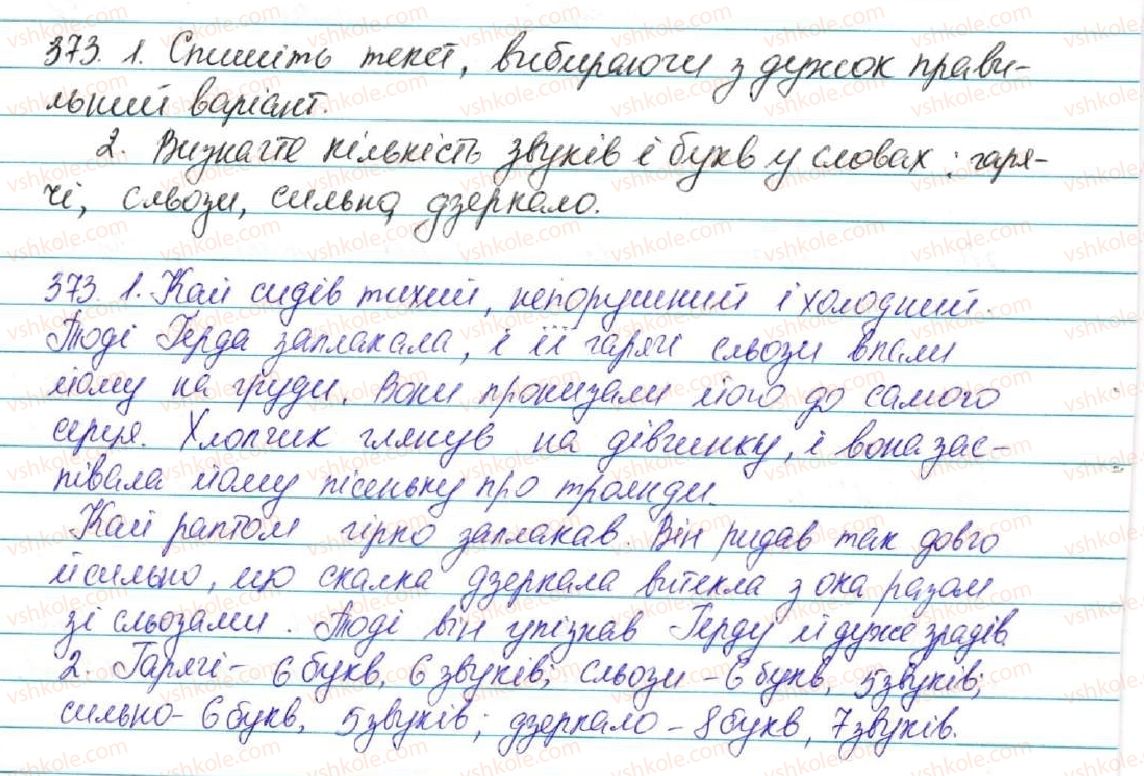 373. 1. Спишіть текст, вибираючи з дужок прави-
льний варіант.
2. Визначте кількість звуків і букв у словах: гаря-
чі, сльози, сильно, дзеркало.
373. 1. Кай сидів тихий, непорушний і холодний.
Тоді Герда заплакала, і її гарячі сльози впали
йому на груди. Вони пронизали його до самого
серця. Хлопчик глянув на дівчинку, і вона зас-
півала йому пісеньку про троянди.
Кай раптом гірко заплакав. Він ридав так довго
й сильно, що скалка дзеркала витекла з ока разом
зі сльозами. Тоді він упізнав Герду й дуже зрадів.
2. Гарячі - 6 букв, 6 звуків; сльози - 6 букв, 5 звуків;
сильно - 6 букв, 5 звуків; дзеркало - 8 букв, 7 звуків.